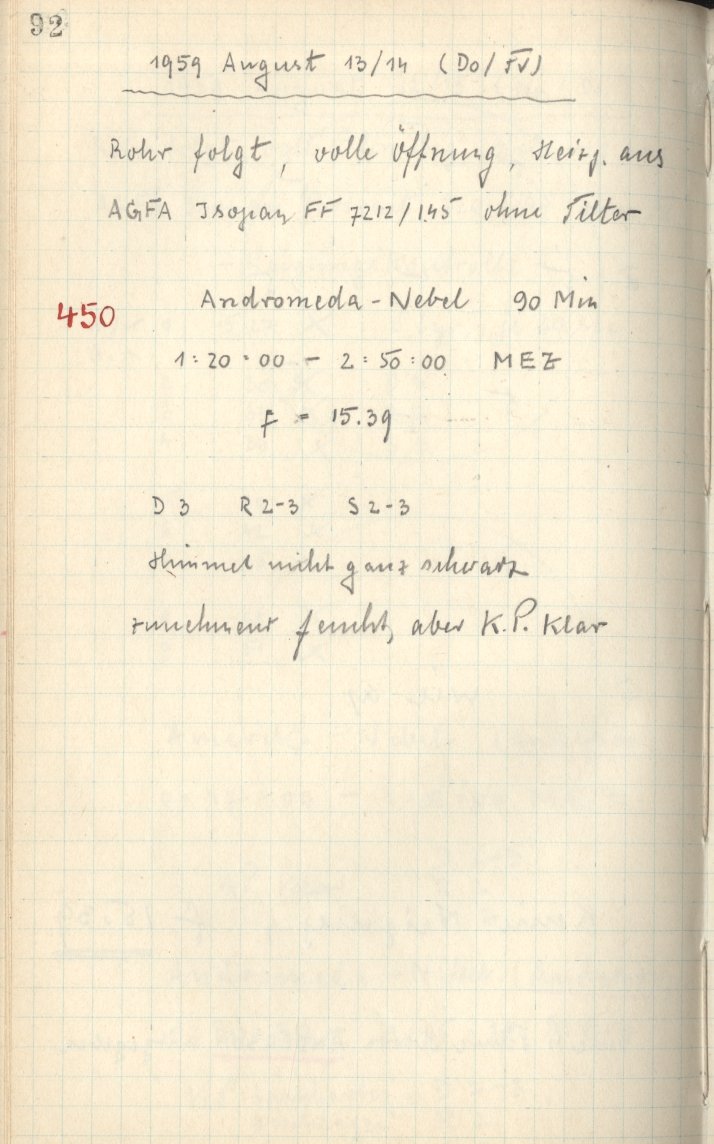 92
1959 August 13/14 (Do/Fr)
Rohr folgt, volle Öffnung, Heizg. aus
AGFA Isopan FF 7212/145 ohne Filter
450 Andromeda-Nebel 90 Min
1:20:00 - 2:50:00 MEZ
f = 15.39
D 3 R 2-3 S 2-3
Himmel nicht ganz schwarz
zunehmend feucht, aber K.P. klar